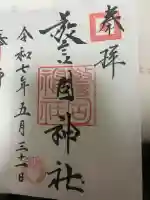 奉拝
警固神社
令和七年五月三十一日